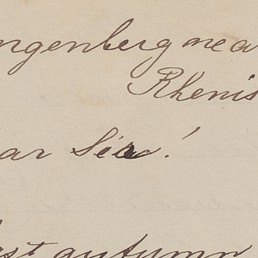 ngenberg nea
Rhenis
ar Sir!
st autumn